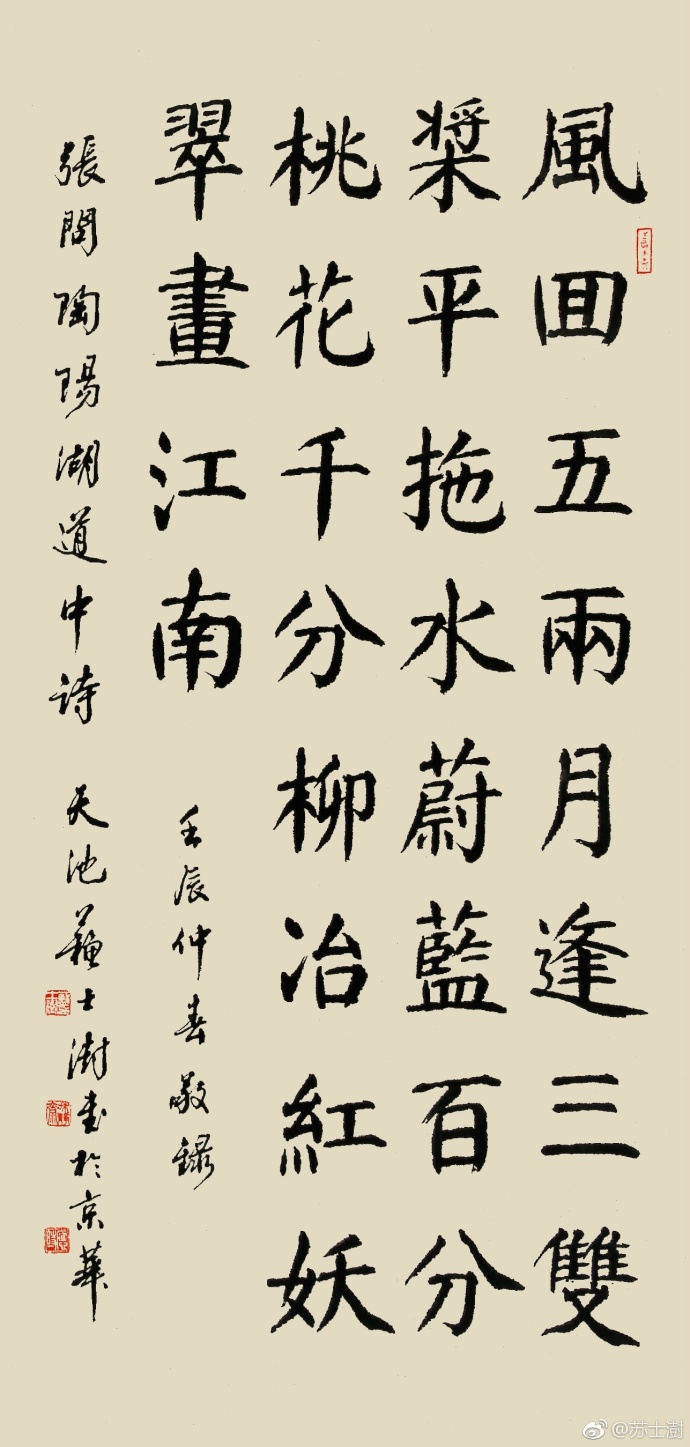 風回五兩月逢三雙
槳平拖水蔚藍百分
桃花千分柳冶紅妖
翠畫江南
壬辰仲春敬錄
張問陶陽湖道中詩 天池蘇士澍書於京華
@苏士澍